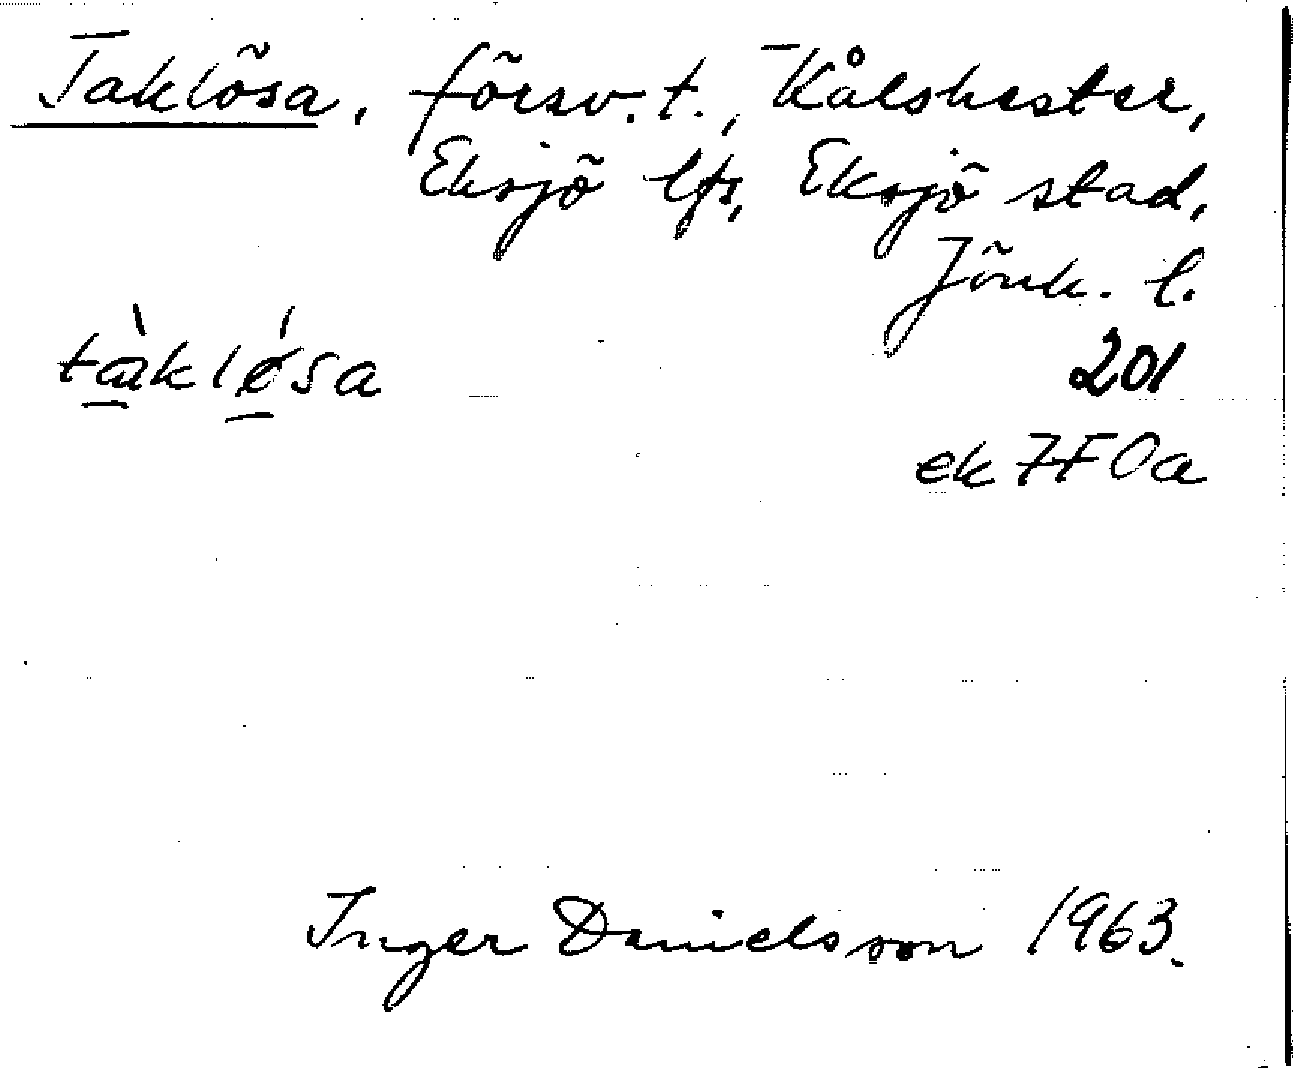 Taklõsa, fõrsv. t., Kålshester,
Eksjõ lfs, Eksjõ stad,
Jõnk. l.
tàklǿsa
201
ek 7F0a
Inger Danielsson 1963.